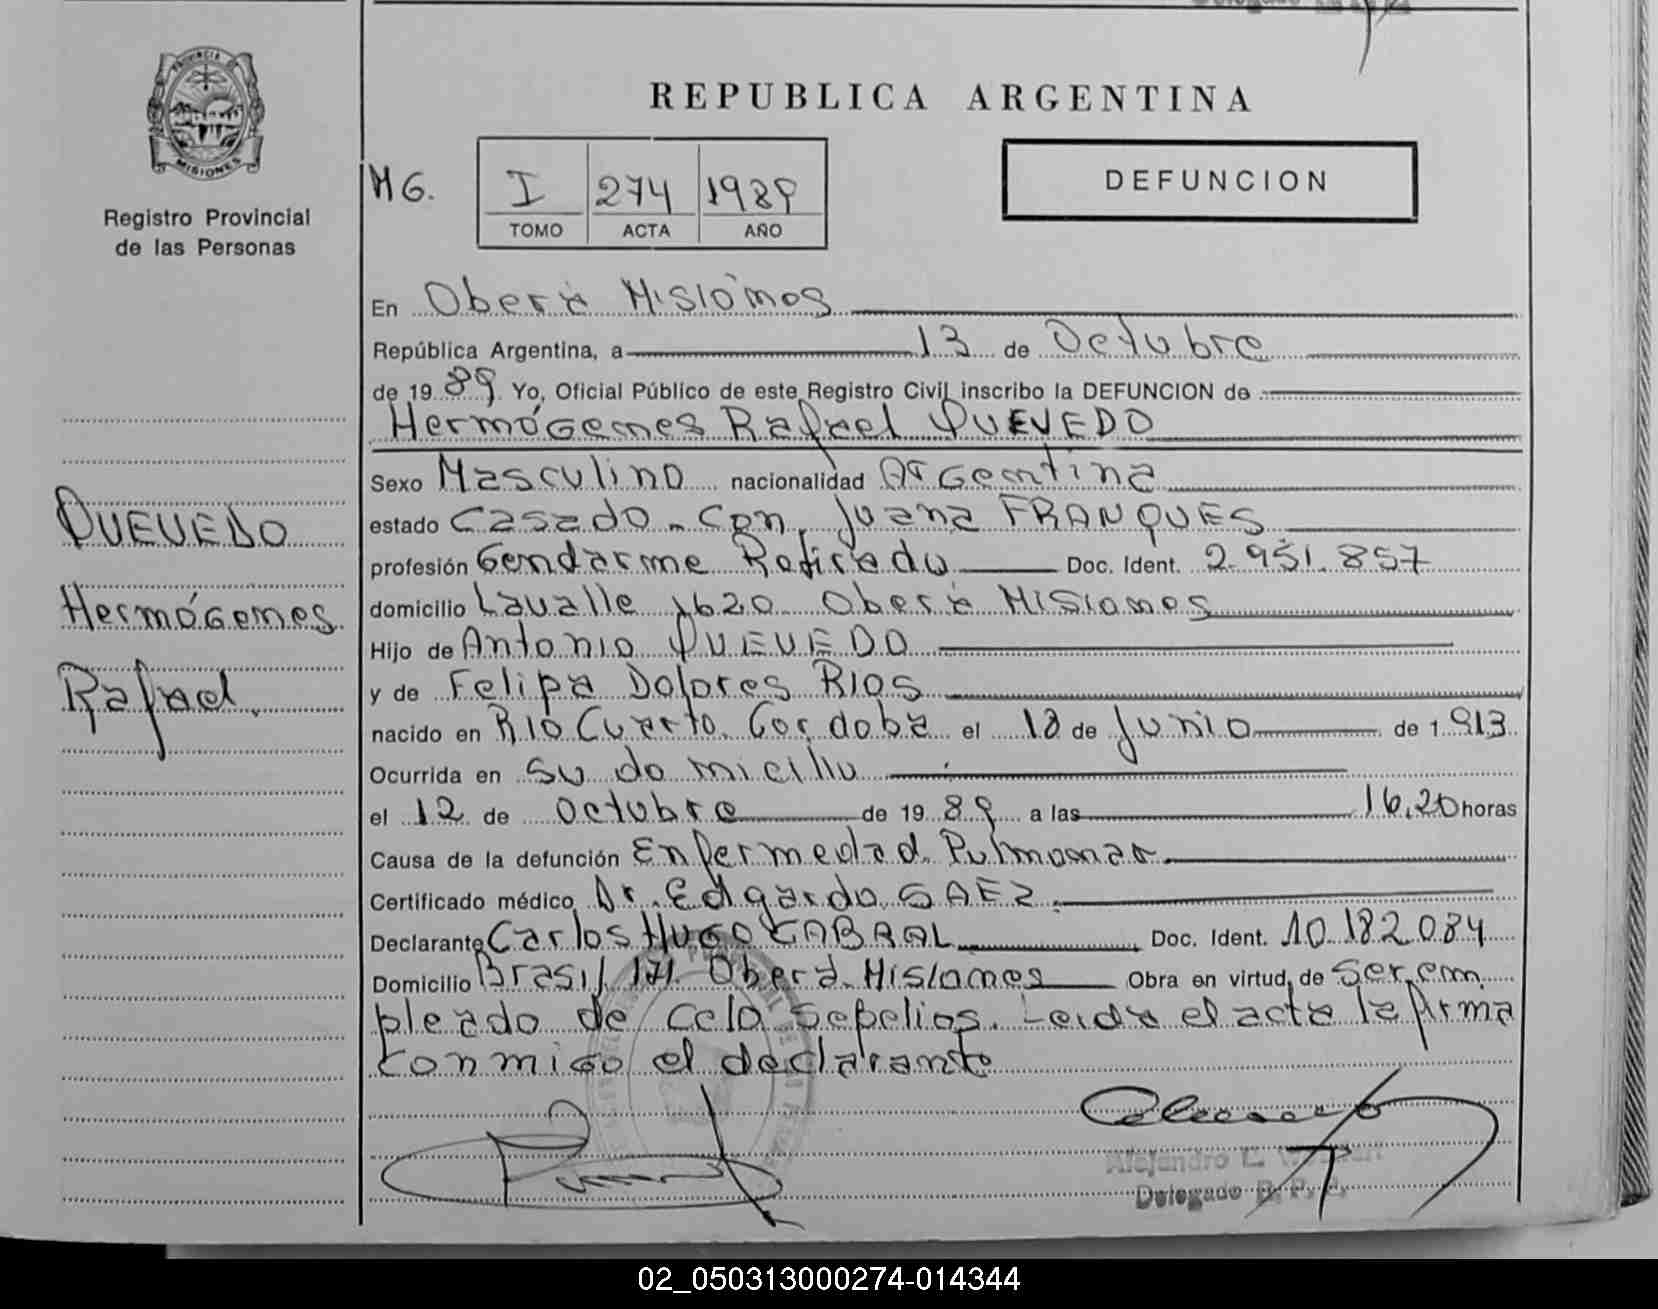 PROVINCIA DE
MISIONES
Registro Provincial
de las Personas
REPUBLICA ARGENTINA
MG.
I 274 1989
TOMO ACTA AÑO
DEFUNCION
En Oberá Misiones
República Argentina, a 13 de Octubre
de 1989. Yo, Oficial Público de este Registro Civil inscribo la DEFUNCION de
Hermógenes Rafael QUEVEDO
Sexo Masculino nacionalidad Argentina
estado Casado - con Juana FRANQUES
profesión Gendarme Retirado Doc. Ident. 2.951.857
domicilio Lavalle 1620 Oberá Misiones
Hijo de Antonio QUEVEDO
y de Felipa Dolores RIOS
nacido en Rio Cuarto Cordoba el 18 de Junio de 1913
Ocurrida en su domicilio
el 12 de Octubre de 1989 a las 16,20 horas
Causa de la defunción Enfermedad Pulmonar
Certificado médico Dr. Edgardo SAEZ
Declarante Carlos Hugo CABRAL Doc. Ident. 10.182.084
Domicilio Brasil 171 Oberá Misiones Obra en virtud de ser em
pleado de Celo Sepelios. Leida el acta la firma
conmigo el declarante
QUEVEDO
Hermógenes
Rafael.
Alejandro L.
Delegado R. P. C.
02_050313000274-014344